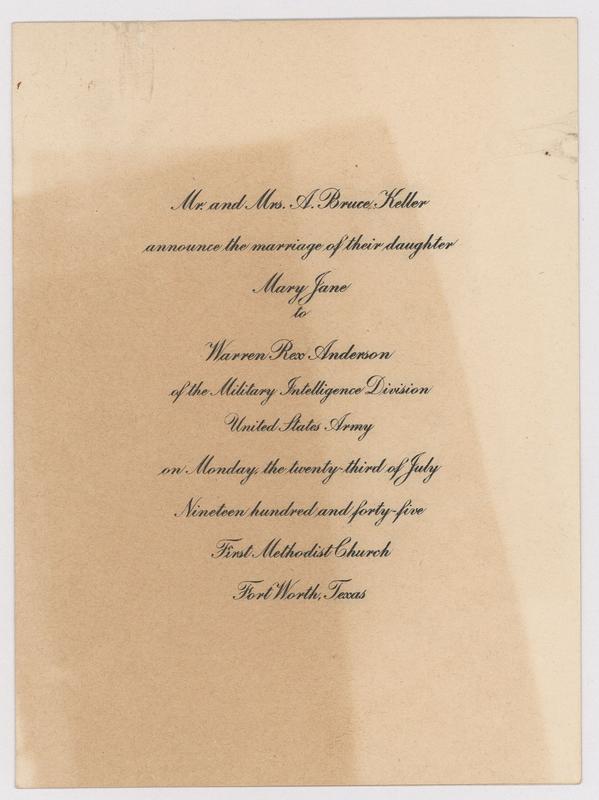 Mr. and Mrs. A. Bruce Keller
announce the marriage of their daughter
Mary Jane
to
Warren Rex Anderson
of the Military Intelligence Division
United States Army
on Monday, the twenty-third of July
Nineteen hundred and forty-five
First Methodist Church
Fort Worth, Texas